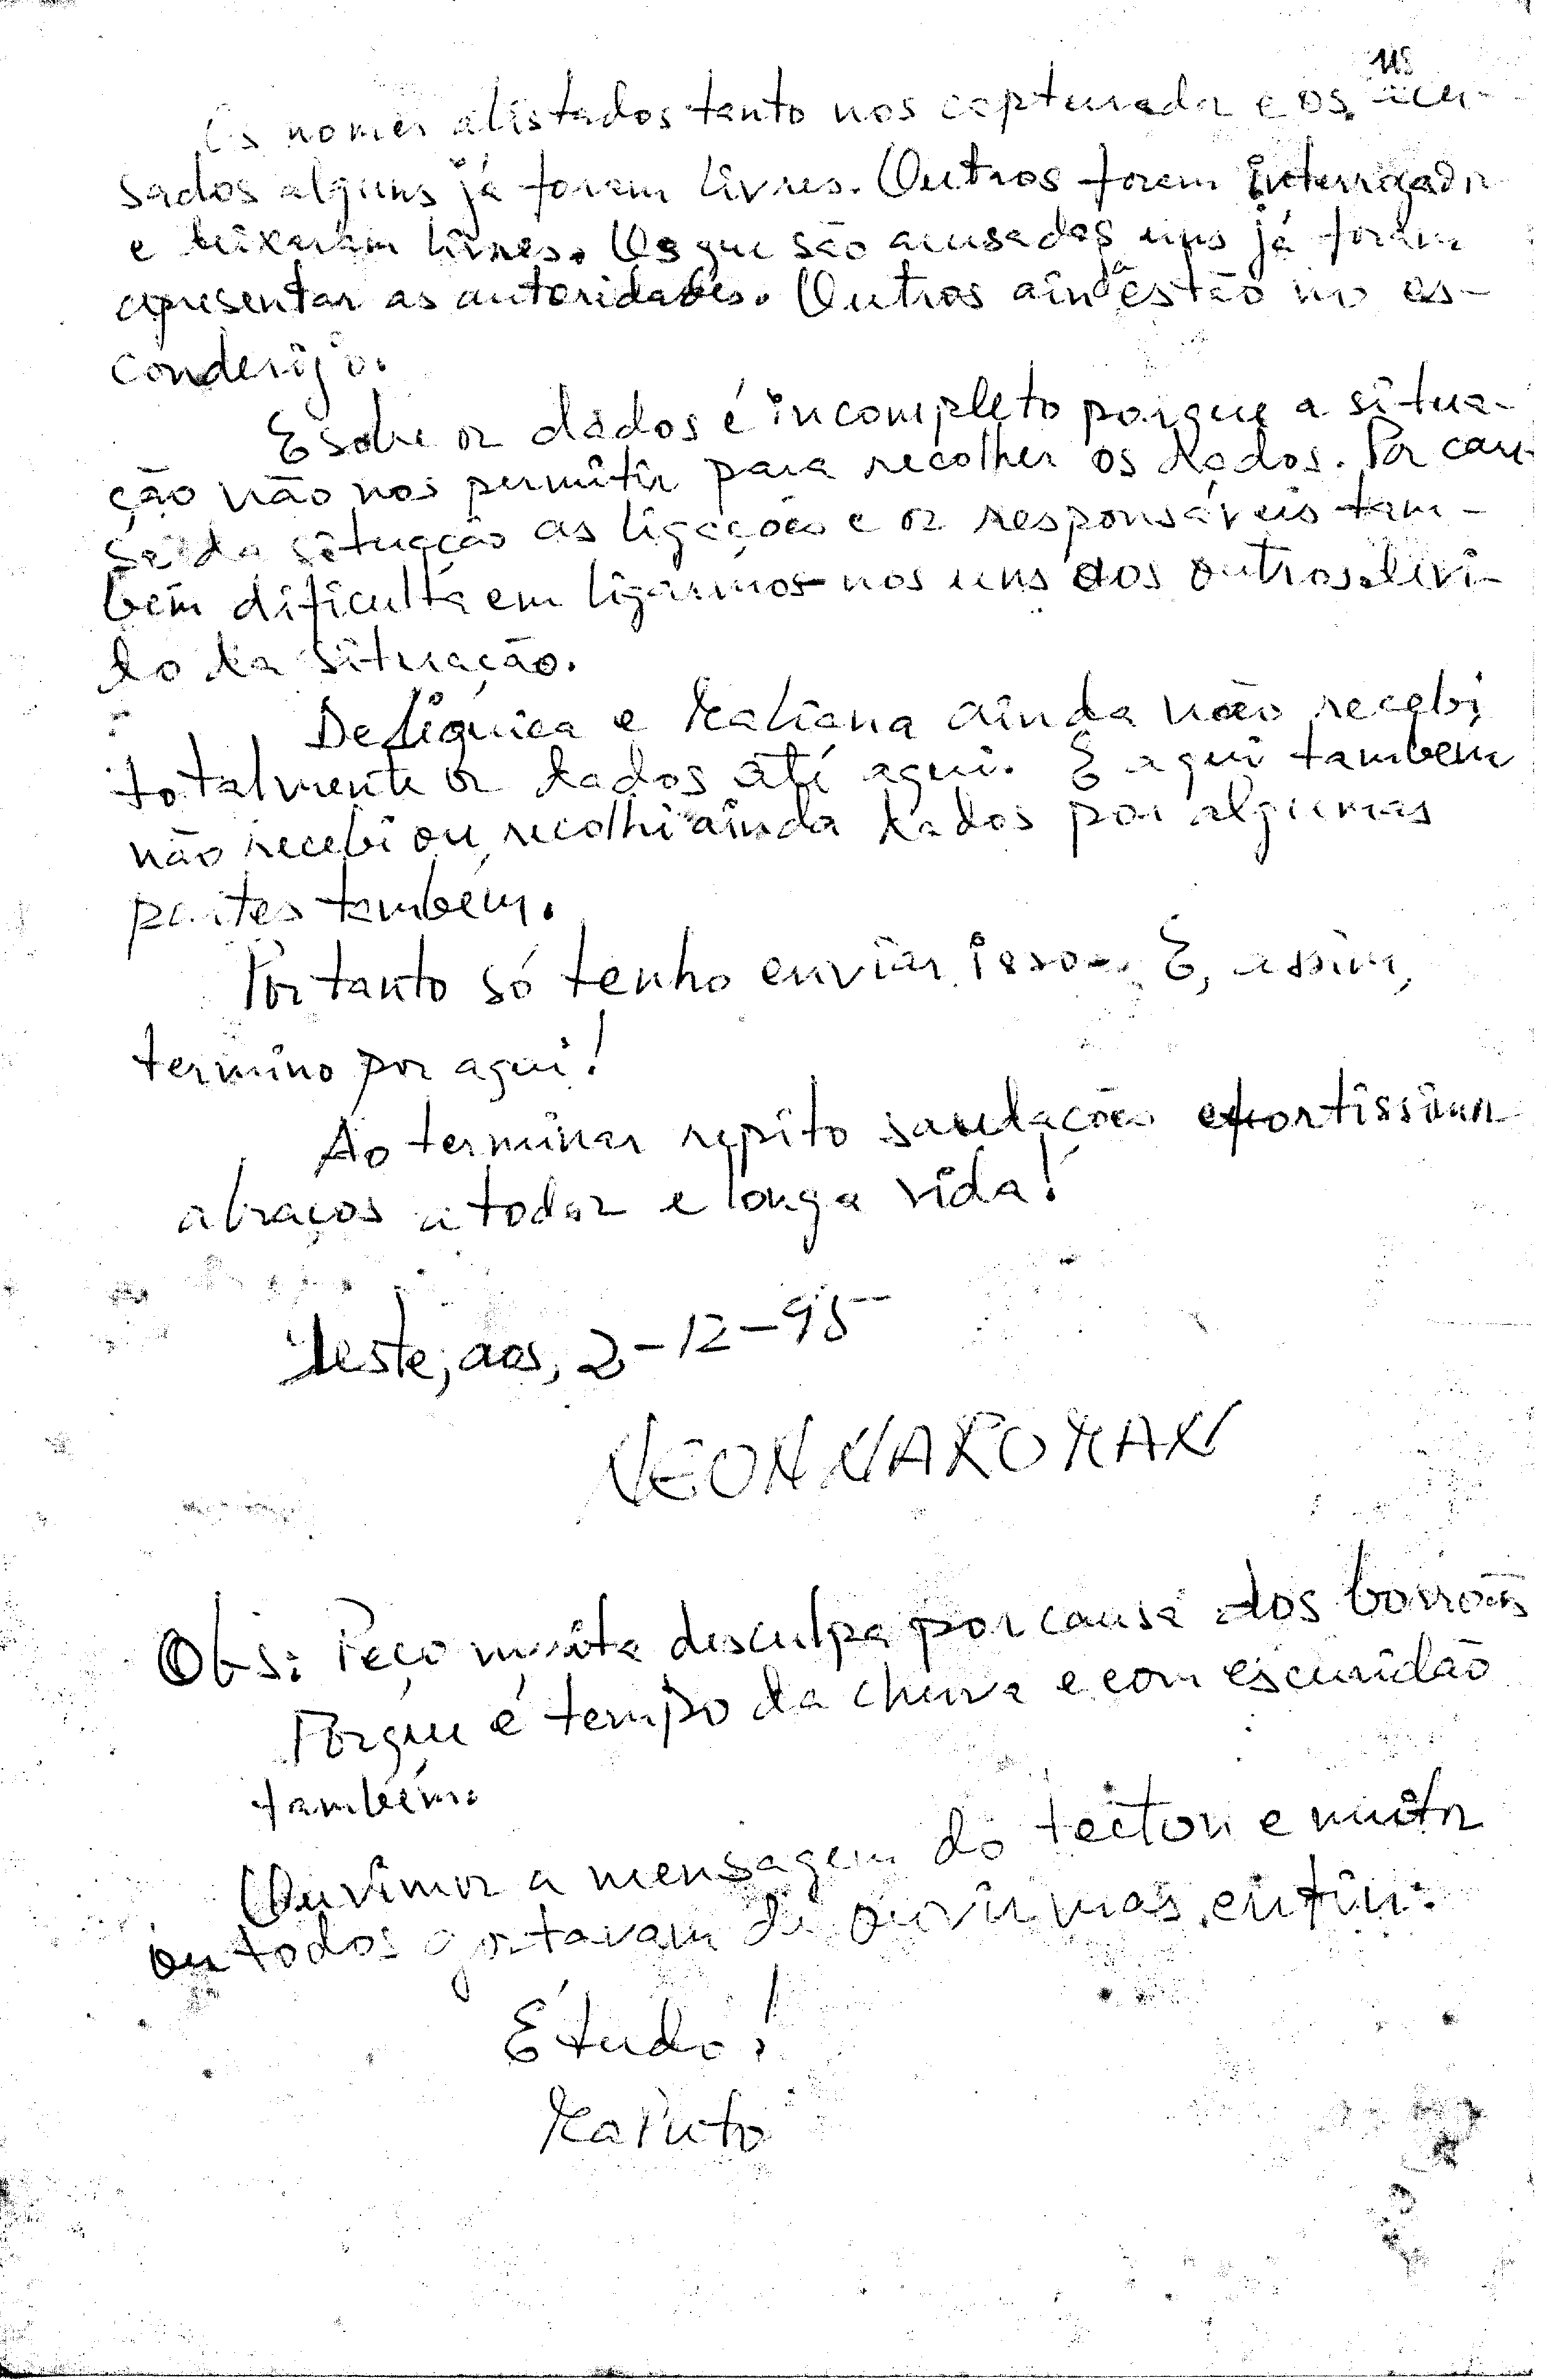 115
Os nomes alistados tanto nos capturada e os acu-
sados alguns já foram livres. Outros foram interrogados
e deixaram livres. Os que são acusados uns já foram
apresentar as autoridades. Outros ainda estão no es-
conderijo.
E sobre os dados é incompleto porque a situa-
ção não nos permitir para recolher os dados. Por cau-
sa da situação as ligações e os responsáveis tam-
bém dificulta em ligarmos-nos uns aos outros devi-
do da situação.
De Liquica e Maliana ainda não recebi
totalmente os dados até aqui. E aqui também
não recebi ou recolhi ainda dados por algumas
partes também.
Portanto só tenho enviar isso. E, assim,
termino por aqui!
Ao terminar repito saudações e fortissimos
abraços a todos e longa vida!
Leste, aos, 2-12-95
NEON NAROMAN
Obs: Peço muita desculpa por causa dos borrões
Porque é tempo da chuva e com escuridão
também.
Ouvimos a mensagem do e muitos
ou todos gostavam de ouvir mas, enfim.
É tudo!